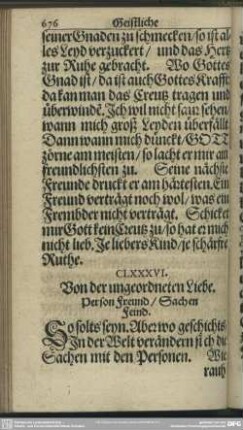 676 Geistliche
seiner Gnaden zu schmecken/ so ist al-
les Leyd verzuckert/ und das Hertz
zur Ruhe gebracht. Wo Gottes
Gnad ist/ da ist auch Gottes Krafft
da kan man das Creutz tragen und
überwindē. Ich wil nicht saur sehen
wann mich groß Leyden überfällt
Dann wann mich dünckt/ GOTT
zörne am meisten/ so lacht er mir am
freundlichsten zu. Seine nächste
Freunde druckt er am härtesten. Ein
Freund verträgt noch wol/ was ein
Frembder nicht verträgt. Schicket
mir Gott kein Creutz zu/ so hat er mich
nicht lieb. Je liebers Kind/ je schärffe
Ruthe.
CLXXXVI.
Von der ungeordneten Liebe.
Person Freund/ Sachen
Feind.
So solts seyn. Aber wo geschichts
In der Welt verändern sich die
Sachen mit den Personen. Wie
rauh